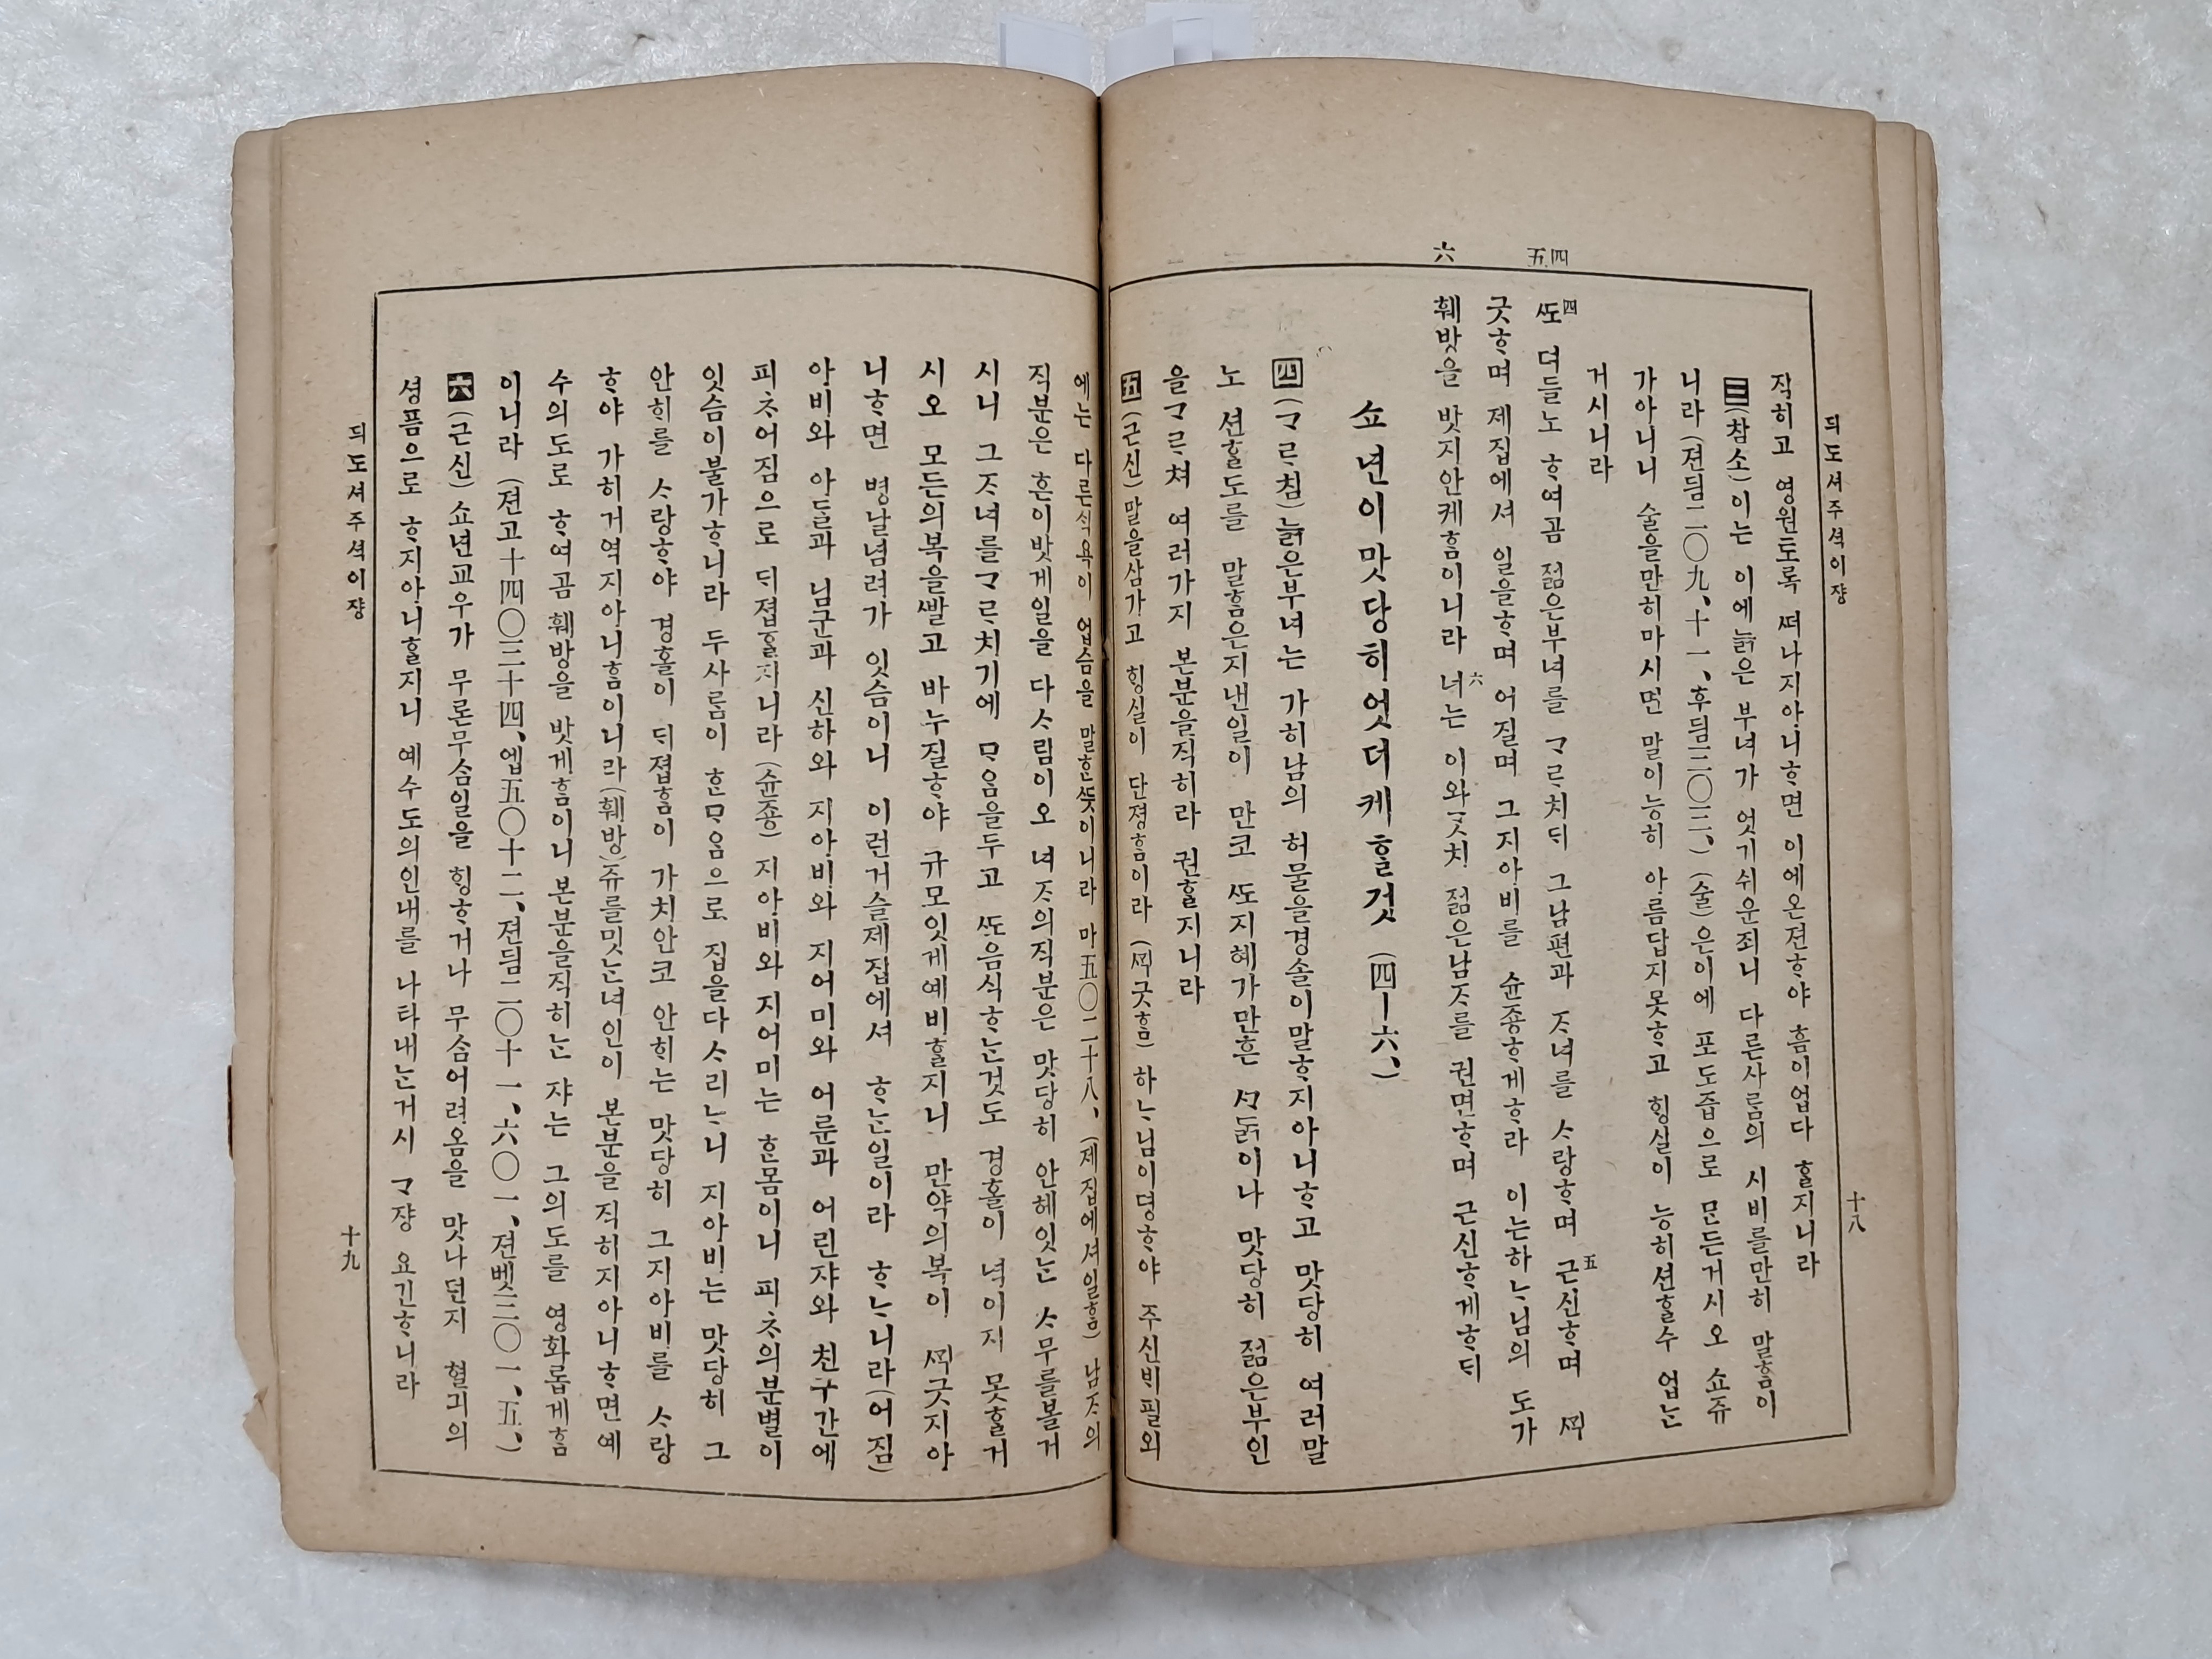 듸도셔주셕이쟝
十八
작히고 영원토록 ᄯᅥ나지아니ᄒᆞ면 이에온젼ᄒᆞ야 흠이업다 ᄒᆞᆯ지니라
三(참소)이는 이에늙은 부녀가 엇기쉬운죄니 다른사ᄅᆞᆷ의 시비를만히 말ᄒᆞᆷ이
니라 (젼듸二〇九、十一、후듸三〇三、) (술)은이에 포도즙으로 ᄆᆞᆫ든거시오 쇼쥬
가아니니 술을만히마시면 말이능히 아름답지못ᄒᆞ고 ᄒᆡᆼ실이 능히션ᄒᆞᆯ수 업ᄂᆞᆫ
거시니라
四 五
四ᄯᅩ 뎌들노 ᄒᆞ여곰 졂은부녀를 ᄀᆞᄅᆞ치ᄃᆡ 그남편과 ᄌᆞ녀를 ᄉᆞ랑ᄒᆞ며 五근신ᄒᆞ며 ᄭᆡᆨ
긋ᄒᆞ며 제집에셔 일을ᄒᆞ며 어질며 그지아비를 슌죵ᄒᆞ게ᄒᆞ라 이는하ᄂᆞ님의 도가
六
훼방을 밧지안케ᄒᆞᆷ이니라 六너는 이와ᄀᆞᆺ치 졂은남ᄌᆞ를 권면ᄒᆞ며 근신ᄒᆞ게ᄒᆞᄃᆡ
쇼년이맛당히엇더케ᄒᆞᆯ것 (四ㅡ六、)
四(ᄀᆞᄅᆞ침)늙은부녀는 가히남의 허물을경솔이말ᄒᆞ지아니ᄒᆞ고 맛당히 여러말
노 션ᄒᆞᆯ도를 말ᄒᆞᆷ은지낸일이 만코 ᄯᅩ지혜가만흔 ᄭᆞᄃᆞᆰ이나 맛당히 졂은부인
을ᄀᆞᄅᆞ쳐 여러가지 본분을직히라 권ᄒᆞᆯ지니라
五(근신)말을삼가고 ᄒᆡᆼ실이 단졍ᄒᆞᆷ이라 (ᄭᆡᆨ긋ᄒᆞᆷ) 하ᄂᆞ님이명ᄒᆞ야 주신ᄇᆡ필외
에는 다른식욕이 업슴을 말ᄒᆞᆫᄯᅳᆺ이니라 마五〇二十八、(제집에셔일ᄒᆞᆷ) 남ᄌᆞ의
직분은 흔이밧게일을 다ᄉᆞ림이오 녀ᄌᆞ의직분은 맛당히 안헤잇ᄂᆞᆫ ᄉᆞ무를볼거
시니 그ᄌᆞ녀를ᄀᆞᄅᆞ치기에 ᄆᆞ음을두고 ᄯᅩ음식ᄒᆞᄂᆞᆫ것도 경홀이 녁이지 못ᄒᆞᆯ거
시오 모든의복을ᄲᅡᆯ고 바누질ᄒᆞ야 규모잇게예비ᄒᆞᆯ지니 만약의복이 ᄭᆡᆨ긋지아
니ᄒᆞ면 병날념려가 잇슴이니 이런거슬제집에셔 ᄒᆞᄂᆞᆫ일이라 ᄒᆞᄂᆞ니라(어짐)
아비와 아ᄃᆞᆯ과 님군과 신하와 지아비와 지어미와 어룬과 어린쟈와 친구간에
피ᄎᆞ어짐으로 ᄃᆡ졉ᄒᆞᆯ지니라 (슌죵) 지아비와지어미는 ᄒᆞᆫ몸이니 피ᄎᆞ의분별이
잇슴이불가ᄒᆞ니라 두사ᄅᆞᆷ이 ᄒᆞᆫᄆᆞ음으로 집을다ᄉᆞ리ᄂᆞ니 지아비는 맛당히 그
안ᄒᆡ를 ᄉᆞ랑ᄒᆞ야 경홀이 ᄃᆡ졉ᄒᆞᆷ이 가치안코 안ᄒᆡ는 맛당히 그지아비를 ᄉᆞ랑
ᄒᆞ야 가히거역지아니ᄒᆞᆷ이니라(훼방)쥬를밋ᄂᆞᆫ녀인이 본분을직히지아니ᄒᆞ면예
수의도로 ᄒᆞ여곰훼방을 밧게ᄒᆞᆷ이니본분을직히ᄂᆞᆫ 쟈는 그의도를 영화롭게ᄒᆞᆷ
이니라 (젼고十四〇三十四、엡五〇十二、젼듸二〇十一、六〇一、젼벳三〇一、五、)
六(근신)쇼년교우가 무론무ᄉᆞᆷ일을 ᄒᆡᆼᄒᆞ거나 무ᄉᆞᆷ어려옴을 맛나던지 혈긔의
셩픔으로 ᄒᆞ지아니ᄒᆞᆯ지니 예수도의인내를 나타내ᄂᆞᆫ거시 ᄀᆞ쟝 요긴ᄒᆞ니라
듸도셔주셕이쟝
十九